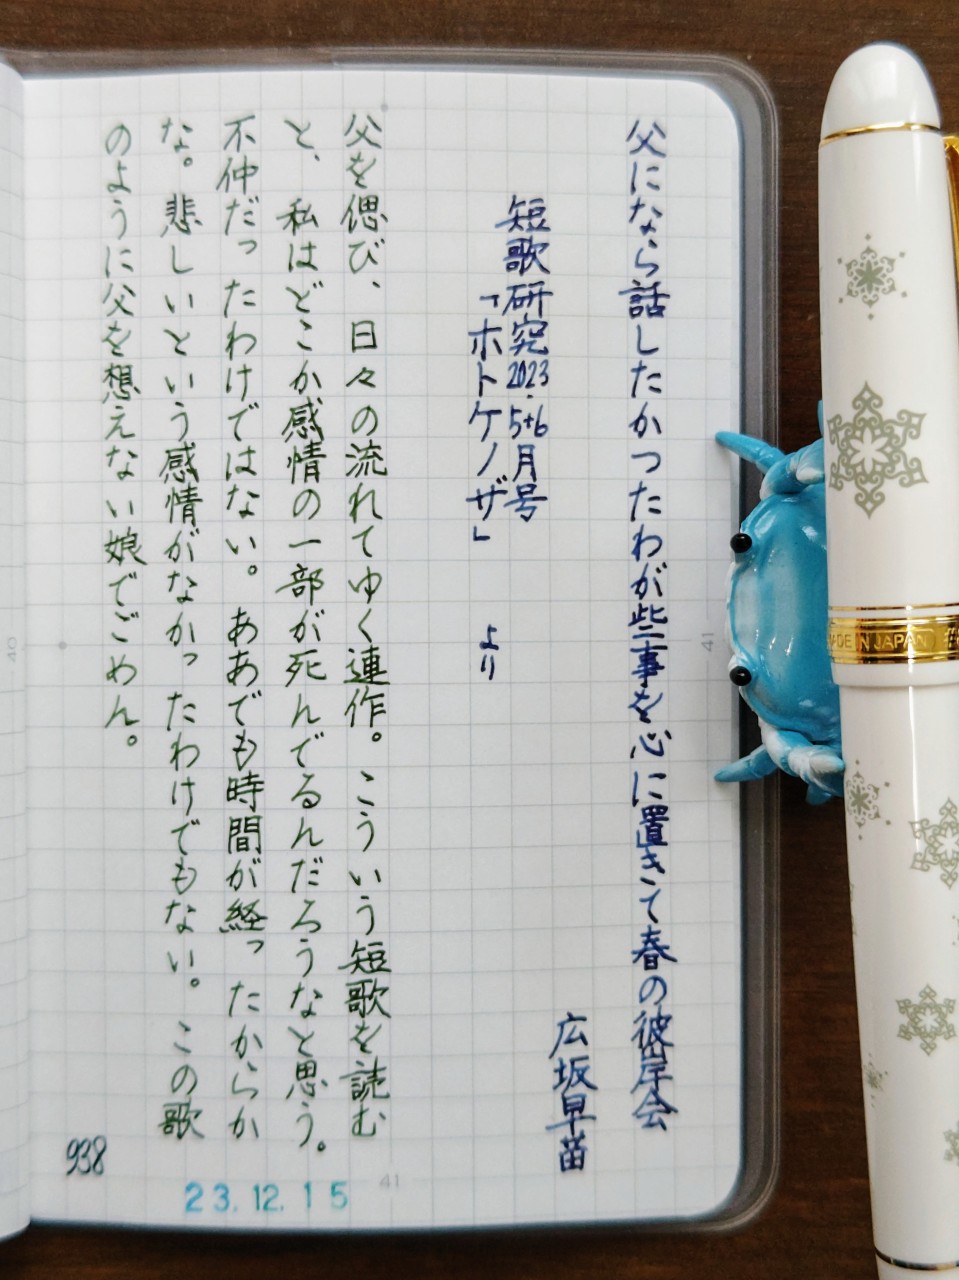 父になら話したかったわが些事を心に置きて春の彼岸会
広坂早苗
短歌研究2023.5+6月号
「ホトケノザ」 より
父を偲び、日々の流れてゆく連作。こういう短歌を読む
と、私はどこか感情の一部が死んでるんだろうなと思う。
不仲だったわけではない。ああでも時間が経ったからか
な。悲しいという感情がなかったわけでもない。この歌
のように父を想えない娘でごめん。
938
23.12.15
41
41
40
MADE IN JAPAN